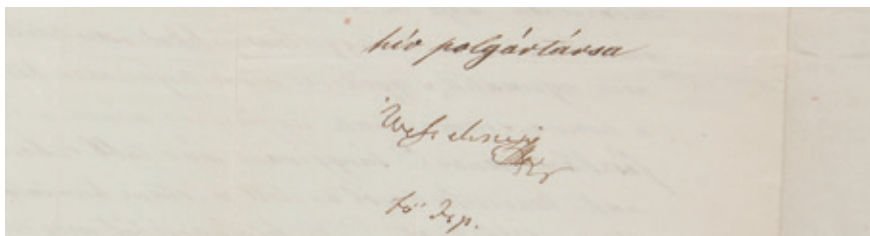 hív polgártársa
Wesselényi
fő Isp.